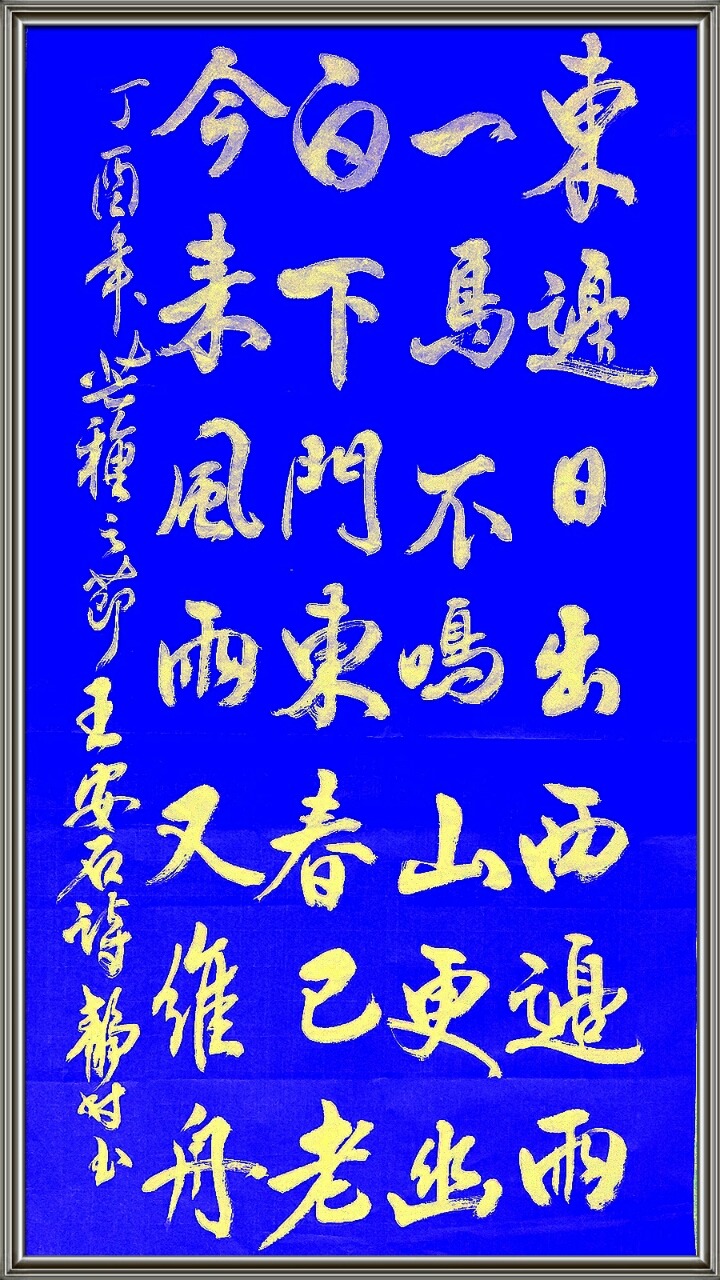 東邊日出西邊雨
一鳥不鳴山更幽
白下門東春已老
今来風雨又維舟
丁酉年芒種之節王安石詩靜时书